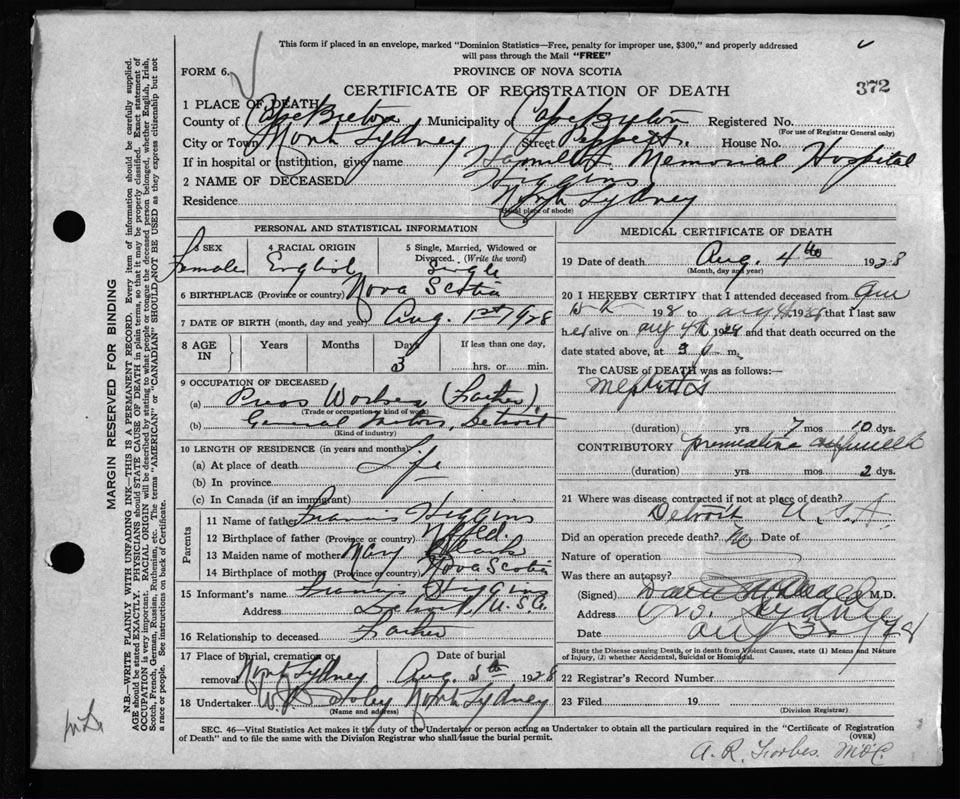 This form if placed in an envelope, marked "Dominion Statistics—Free, penalty for improper use, $300," and properly addressed
will pass through the Mail "FREE"
FORM 6. PROVINCE OF NOVA SCOTIA
CERTIFICATE OF REGISTRATION OF DEATH 372
1 PLACE OF DEATH
County of Cape Breton Municipality of Cape Breton Registered No.
(For use of Registrar General only)
City or Town North Sydney Street Peppett St. House No.
If in hospital or institution, give name Hamilton Memorial Hospital
2 NAME OF DECEASED Higgins
Residence North Sydney
(Usual place of abode)
PERSONAL AND STATISTICAL INFORMATION
3 SEX 4 RACIAL ORIGIN 5 Single, Married, Widowed or Divorced. (Write the word)
Female English Single
6 BIRTHPLACE (Province or country) Nova Scotia
7 DATE OF BIRTH (month, day and year) Aug. 1st 1928
8 AGE IN Years Months Days If less than one day,
3 hrs. or min.
9 OCCUPATION OF DECEASED
(a) Press Worker (Father)
(Trade or occupation or kind of work)
(b) General Motors, Detroit
(Kind of industry)
10 LENGTH OF RESIDENCE (in years and months)
(a) At place of death Life
(b) In province
(c) In Canada (if an immigrant)
Parents
11 Name of father Francis Higgins
12 Birthplace of father (Province or country) Nfld.
13 Maiden name of mother Mary Clark
14 Birthplace of mother (Province or country) Nova Scotia
15 Informant's name Francis Higgins
Address Detroit, U.S.A.
16 Relationship to deceased Father
17 Place of burial, cremation or removal Date of burial
North Sydney Aug. 5th 1928
18 Undertaker W. North Sydney
(Name and address)
MEDICAL CERTIFICATE OF DEATH
19 Date of death Aug. 4th 1928
(Month, day and year)
20 I HEREBY CERTIFY that I attended deceased from
1928 to Aug 4 1928 that I last saw
her alive on Aug 4th 1928 and that death occurred on the
date stated above, at m.
The CAUSE of DEATH was as follows:—
(duration) yrs. 7 mos 10 dys.
CONTRIBUTORY premature
(duration) yrs. mos 2 dys.
21 Where was disease contracted if not at place of death?
Detroit U.S.A.
Did an operation precede death? No Date of
Nature of operation
Was there an autopsy?
(Signed) M.D.
Address No. Sydney
Date
State the Disease causing Death, or in death from Violent Causes, state (1) Means and Nature
of Injury, (2) whether Accidental, Suicidal or Homicidal.
22 Registrar's Record Number
23 Filed 19
(Division Registrar)
SEC. 46—Vital Statistics Act makes it the duty of the Undertaker or person acting as Undertaker to obtain all the particulars required in the "Certificate of Registration
of Death" and to file the same with the Division Registrar who shall issue the burial permit. (OVER)
A. R. Forbes. M.D.C.
MARGIN RESERVED FOR BINDING
N.B.—WRITE PLAINLY WITH UNFADING INK—THIS IS A PERMANENT RECORD. Every item of information should be carefully supplied.
AGE should be stated EXACTLY. PHYSICIANS should STATE CAUSE OF DEATH in plain terms, so that it may be properly classified. Exact statement of
OCCUPATION is very important. RACIAL ORIGIN will be described by stating to what people or tongue the deceased person belonged, whether English, Irish,
Scotch, French, German, Russian, Ruthenian, etc. The terms "AMERICAN" or "CANADIAN" SHOULD NOT BE USED as they express citizenship but not
a race or people. See instructions on back of Certificate.